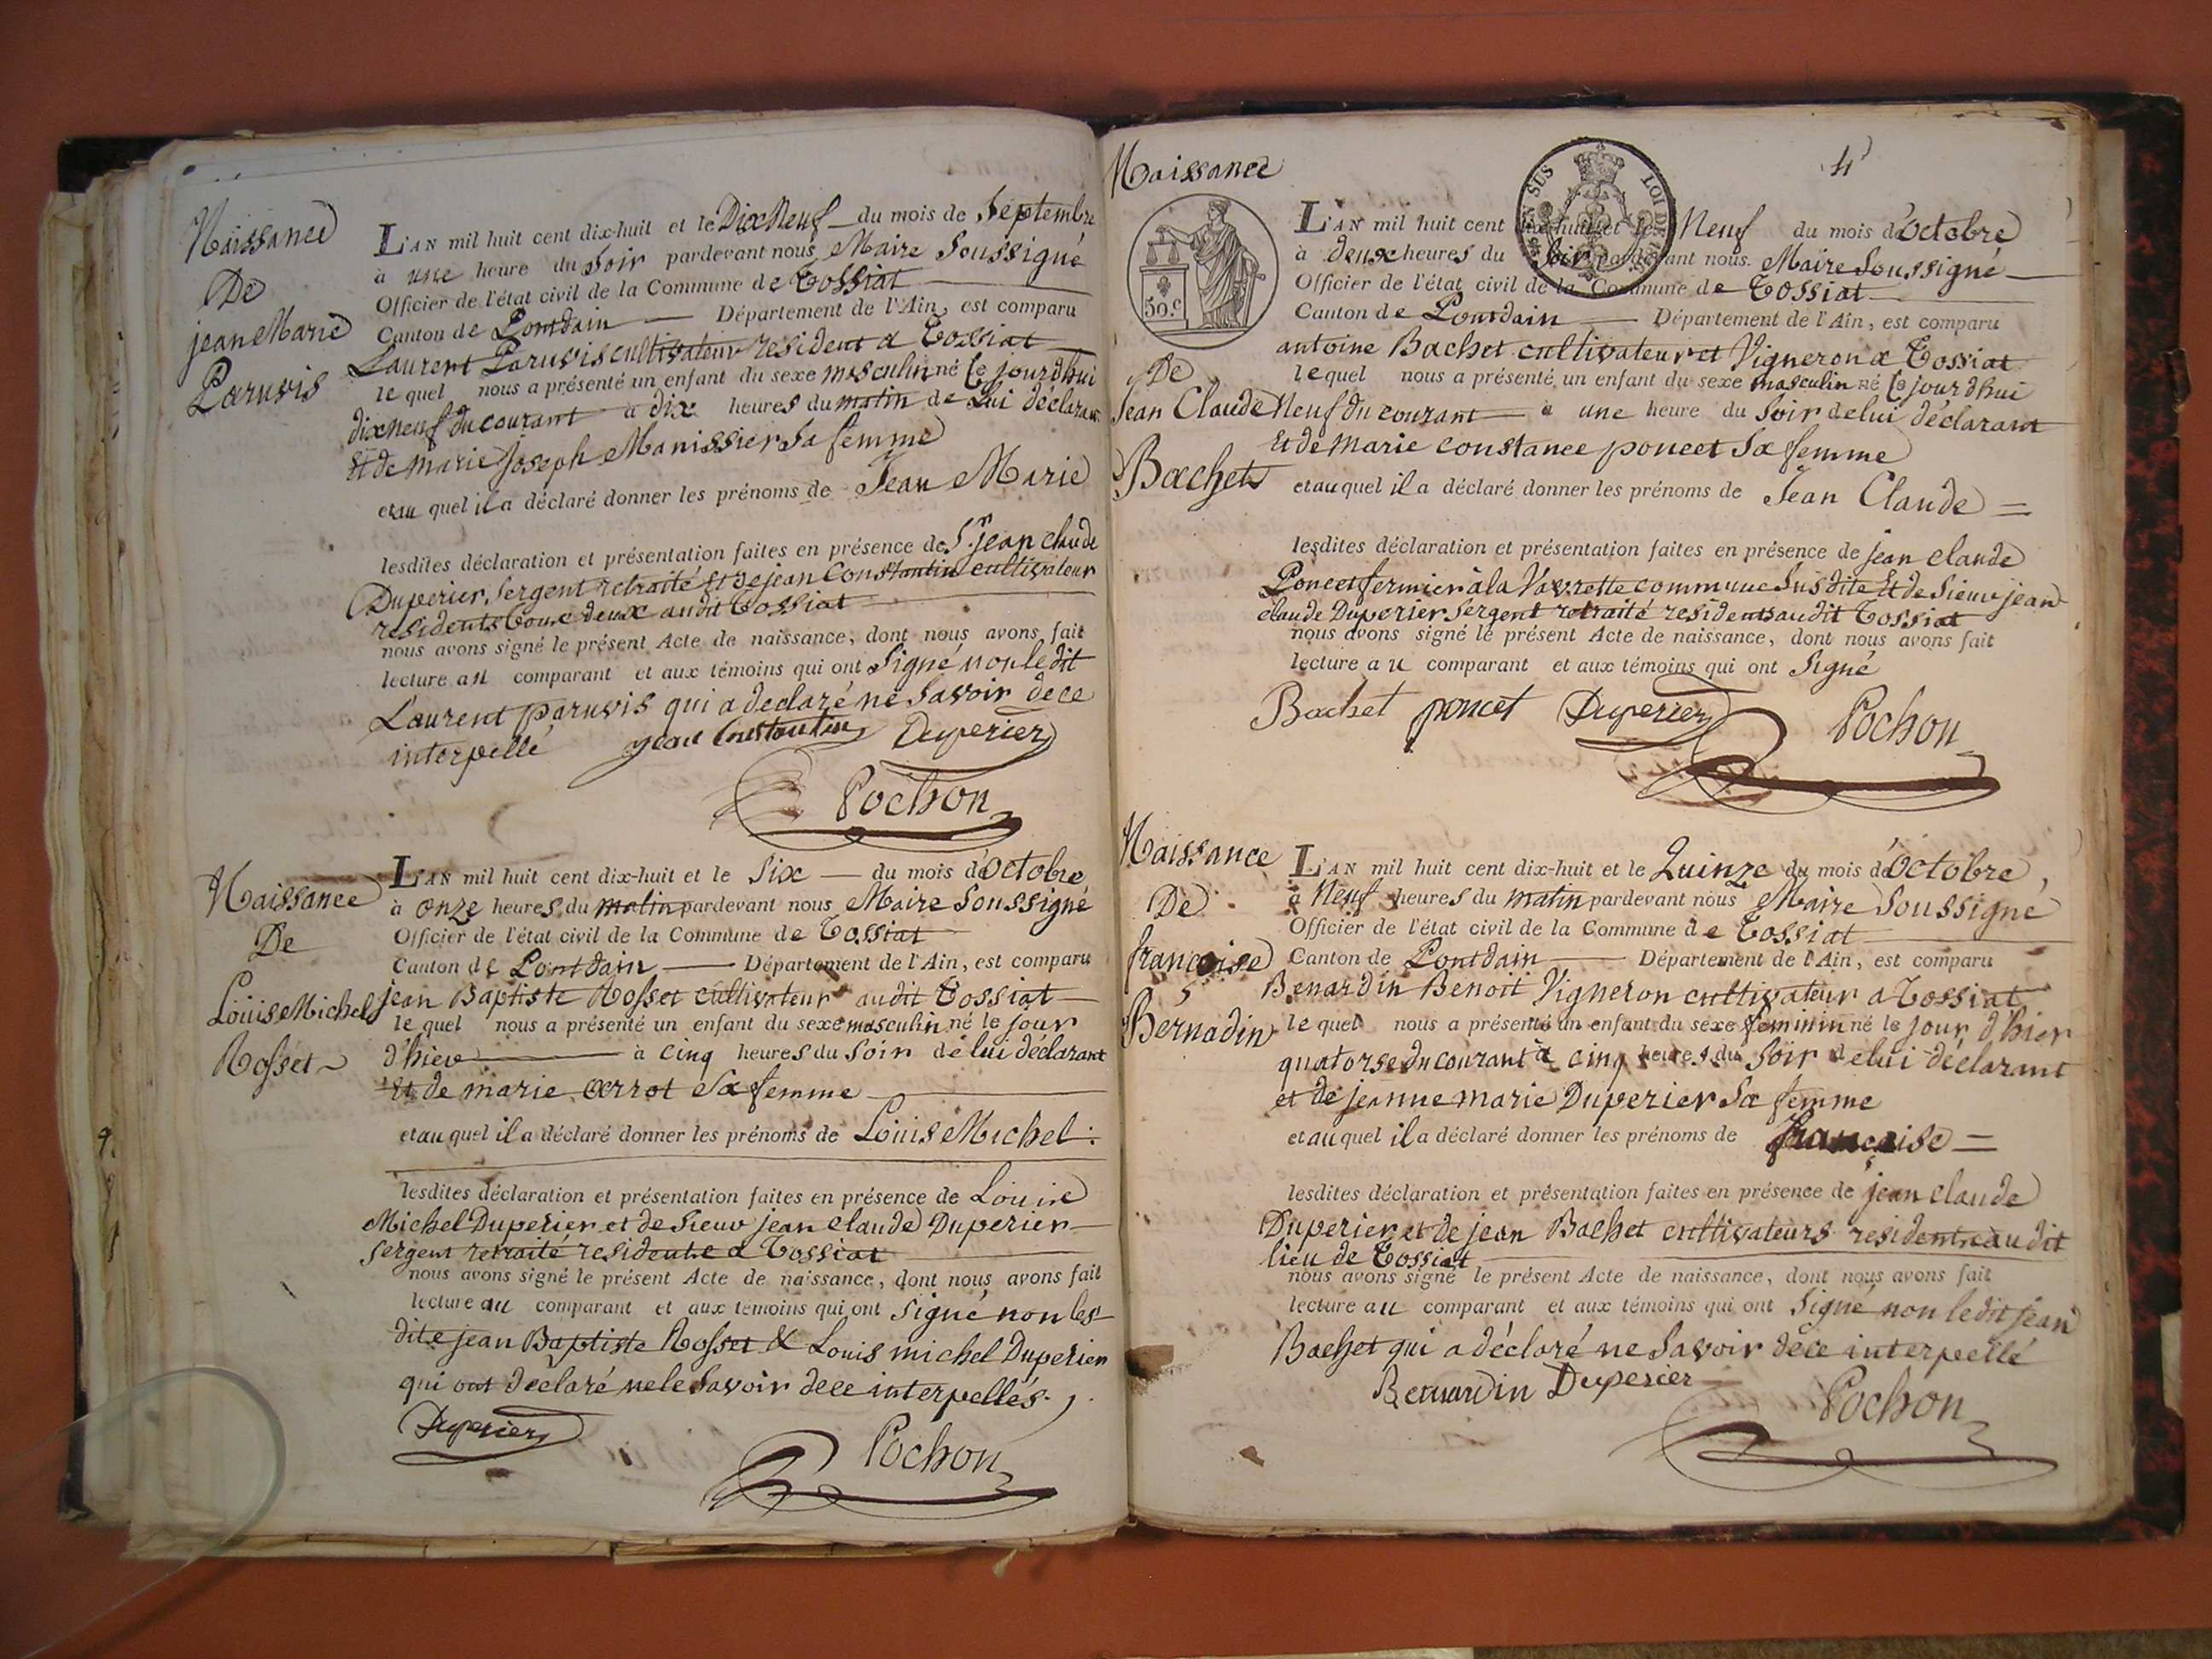 Naissance
De
jean Marie
Paruvis
L'AN mil huit cent dix-huit et le Dix Neuf du mois de Septembre
à une heure du Soir pardevant nous Maire Soussigné
Officier de l'état civil de la Commune de Tossiat
Canton de Pontdain Département de l'Ain, est comparu
Laurent Paruvis cultivateur resident a Tossiat
lequel nous a présenté un enfant du sexe masculin né ce jourd'hui
dix neuf du courant à dix heures du matin de Lui déclarant
Et de marie Joseph Manissier Sa femme
et au quel il a déclaré donner les prénoms de Jean Marie
lesdites déclaration et présentation faites en présence de Sr. jean claude
Duperier, Sergent retraité Et de jean Constantin cultivateur
residents tous deux audit Tossiat
nous avons signé le présent Acte de naissance, dont nous avons fait
lecture au comparant et aux témoins qui ont Signé non le dit
Laurent paruvis qui a declaré ne Savoir de ce
interpellé jean Constantin Duperier
Pochon
Naissance
De
Louis Michel
Rosset
L'AN mil huit cent dix-huit et le Six du mois d'Octobre
à onze heures du matin pardevant nous Maire Soussigné
Officier de l'état civil de la Commune de Tossiat
Canton de Pontdain Département de l'Ain, est comparu
jean Baptiste Rosset cultivateur audit Tossiat
le quel nous a présenté un enfant du sexe masculin né le jour
d'hier à cinq heures du Soir de lui déclarant
Et de marie arrot Sa femme
et au quel il a déclaré donner les prénoms de Louis Michel
lesdites déclaration et présentation faites en présence de Louis
Michel Duperier et de Sieur jean claude Duperier
Sergent retraité residents a Tossiat
nous avons signé le présent Acte de naissance, dont nous avons fait
lecture au comparant et aux témoins qui ont Signé non les
dits jean Baptiste Rosset & Louis michel Duperier
qui ont declaré ne le Savoir de ce interpellés.
Duperier
Pochon
4
Naissance
50 c
De
Jean Claude
Bachet
L'AN mil huit cent dix-huit et le Neuf du mois d'Octobre
à deux heures du Soir pardevant nous Maire Soussigné
Officier de l'état civil de la Commune de Tossiat
Canton de Pontdain Département de l'Ain, est comparu
antoine Bachet cultivateur et Vigneron a Tossiat
lequel nous a présenté un enfant du sexe masculin né ce jour d'hui
Neuf du courant à une heure du Soir de lui déclarant
Et de marie constance poncet Sa femme
et au quel il a déclaré donner les prénoms de Jean Claude =
lesdites déclaration et présentation faites en présence de jean claude
Poncet fermier à la Vavrette commune Susdite Et de Sieur jean
claude Duperier Sergent retraité residents audit Tossiat
nous avons signé le présent Acte de naissance, dont nous avons fait
lecture au comparant et aux témoins qui ont Signé
Bachet poncet Duperier Pochon
Naissance
De
françoise
Bernadin
L'AN mil huit cent dix-huit et le Quinze du mois d'Octobre
à Neuf heures du matin pardevant nous Maire Soussigné
Officier de l'état civil de la Commune de Tossiat
Canton de Pontdain Département de l'Ain, est comparu
Benardin Benoit Vigneron cultivateur a Tossiat
le quel nous a présenté un enfant du sexe feminin né le jour d'hier
quatorse du courant à cinq heures du Soir de lui déclarant
et de jeanne marie Duperier Sa femme
et au quel il a déclaré donner les prénoms de françoise =
lesdites déclaration et présentation faites en présence de jean claude
Duperier et de jean Bachet cultivateurs residents audit
lieu de Tossiat
nous avons signé le présent Acte de naissance, dont nous avons fait
lecture au comparant et aux témoins qui ont Signé non le dit jean
Bachet qui a déclaré ne Savoir de ce interpellé
Bernardin Duperier Pochon